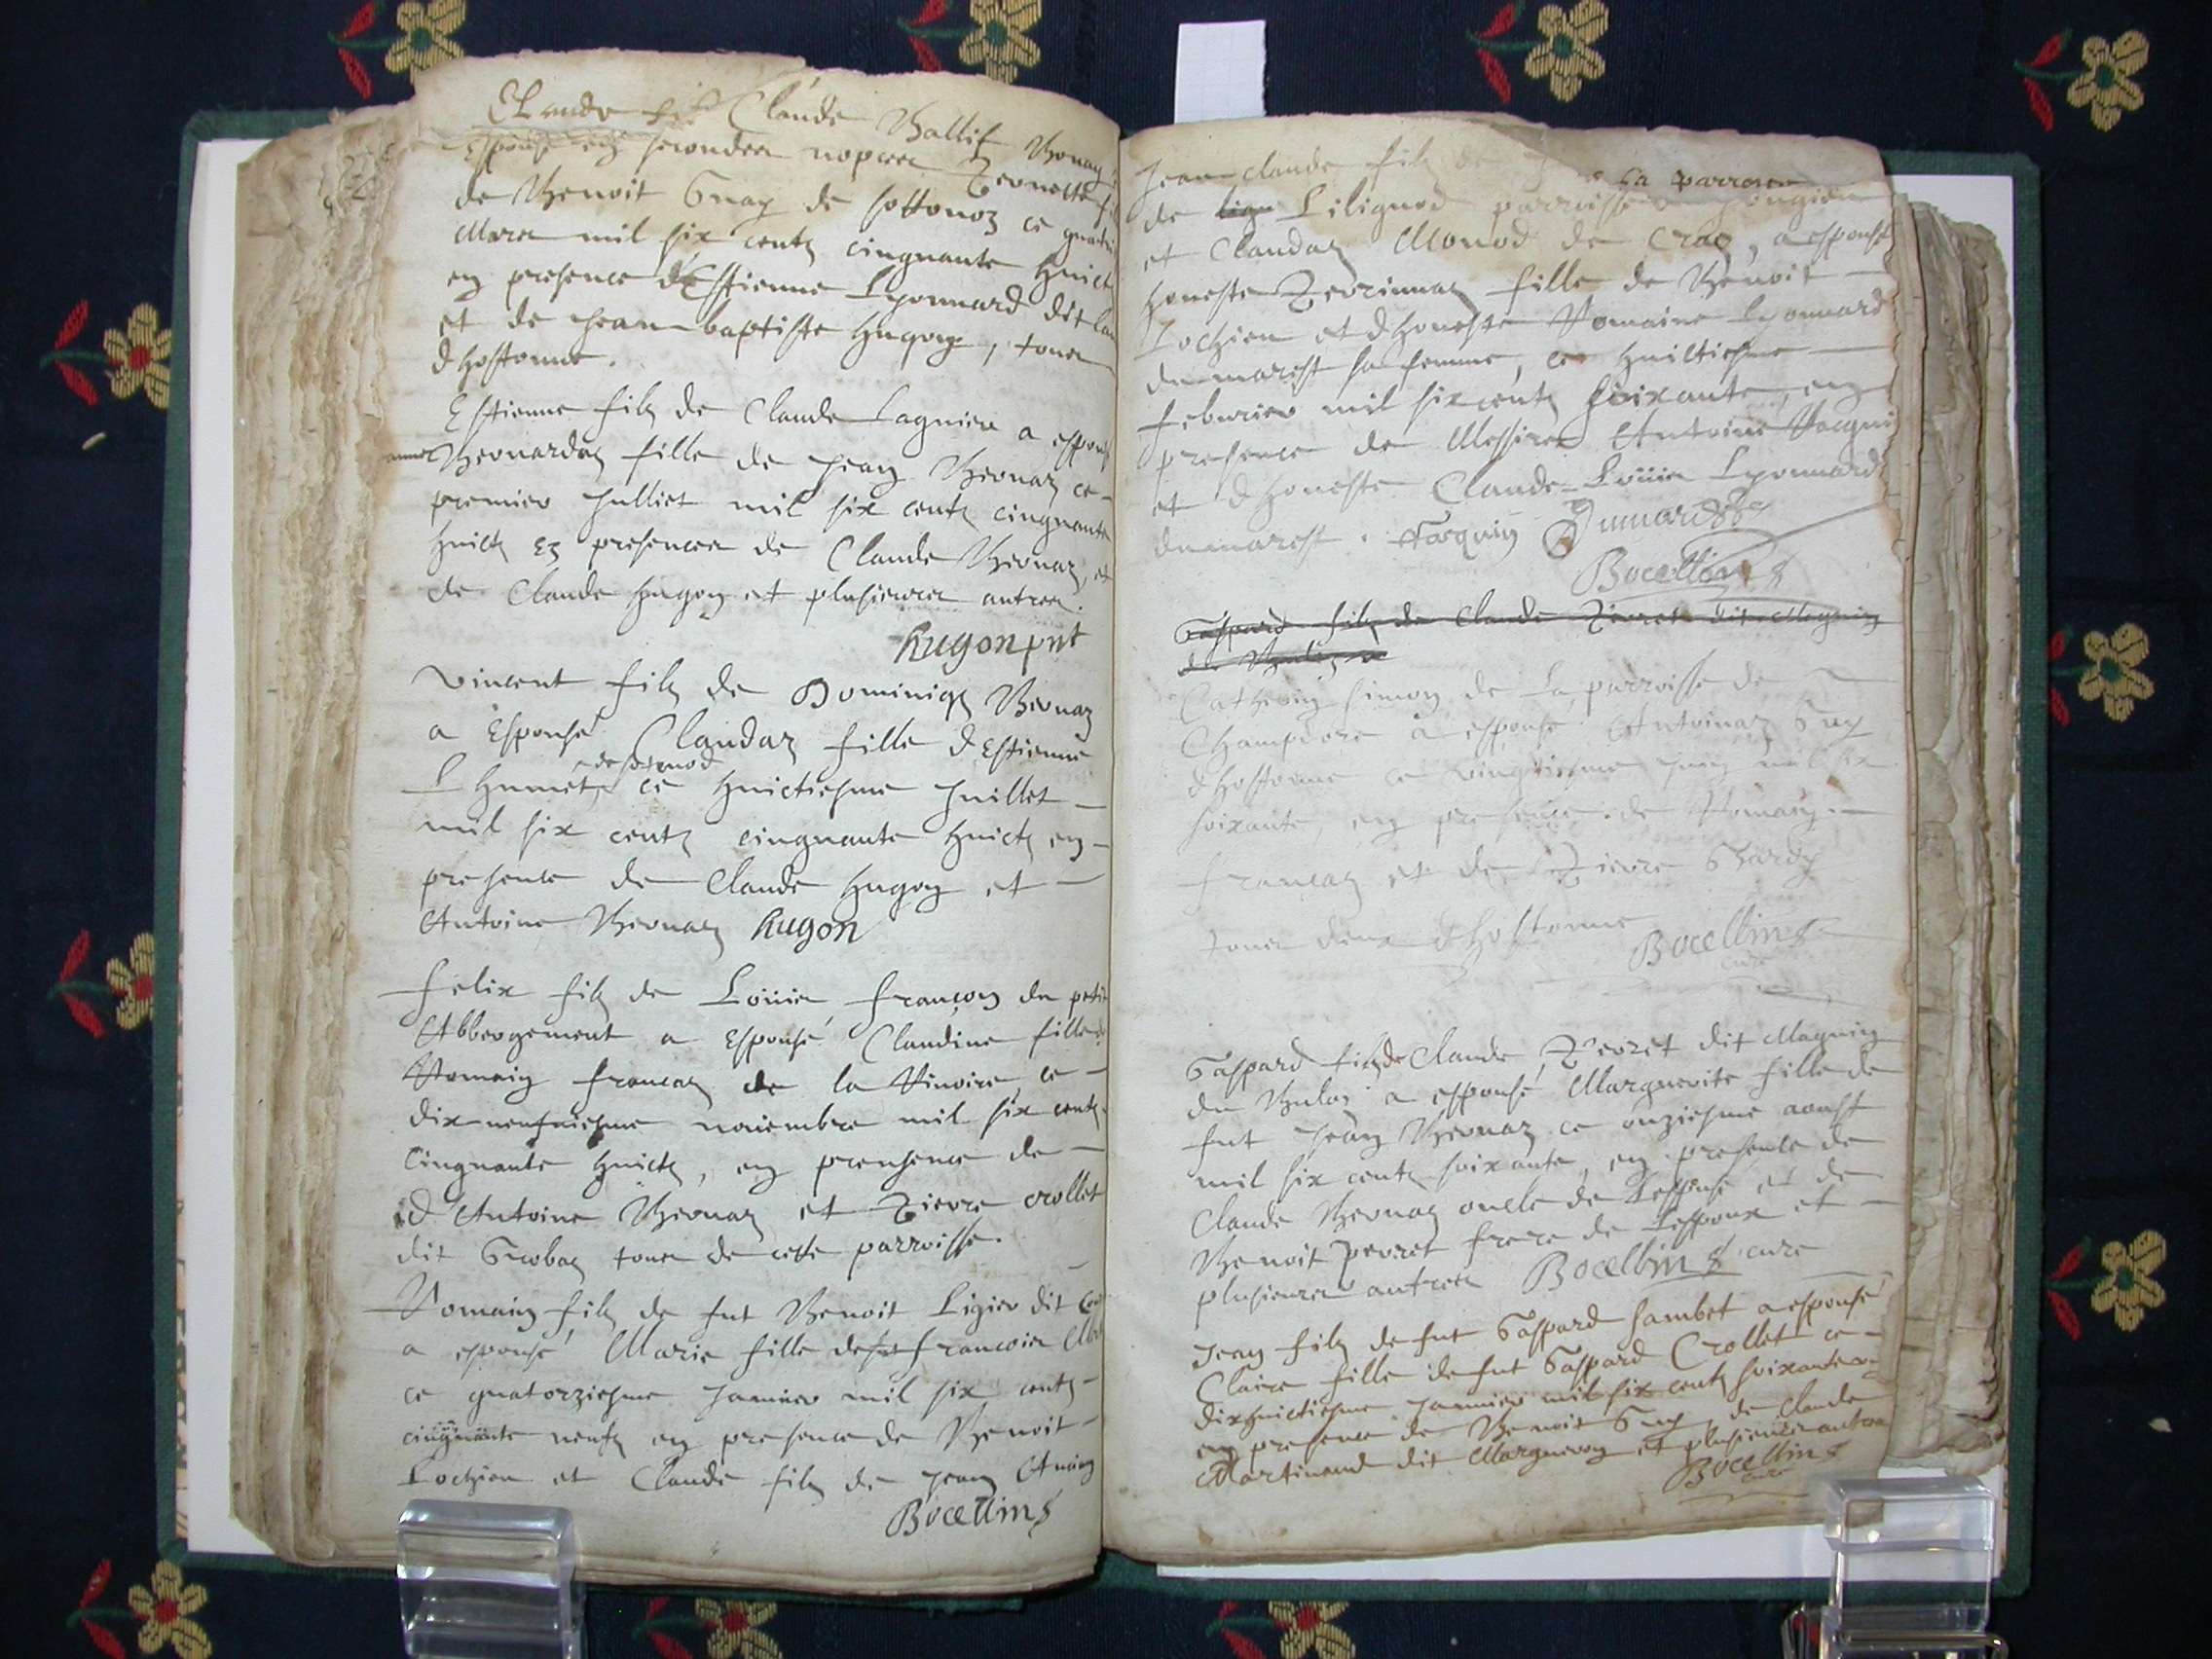 Claude filz Claude Ballif
Espouse en secondes nopces Pernette
de Benoit Guy de sottonoz ce
Mars mil six centz cinquante huict
en presence d'Estienne Lyonnard dit
et de Jean baptiste hugon, tous
d hostonne.
Estienne filz de Claude Lagnier a espouse
Bernardaz fille de Jean Bernaz ce
premier Julliet mil six centz cinquante
huictz Ez presences de Claude Bernaz, et
de Claude hugon et plusieurs autres.
hugon pnt
Vincent filz de Dominiqz Bernaz
a Espousé Claudaz fille d Estienne
L humet, ce huictiesme Juillet
mil six centz cinquante huictz en
presence de Claude hugon et
Antoine Bernaz hugon
Felix filz de Loüis françon du petit
Abbergement a Espousé Claudine fille de
Romain francaz de la Rivoire, ce
dix neufviesme novembre mil six centz
Cinquante huictz, en prensence de
d Antoine Bernaz et Pierre crollet
dit Grobaz tous de cette parroisse.
Romain filz de fut Benoit Ligier dit
a espousé Marie fille de fut francois
ce quatorziesme Janvier mil six centz
cinquante neufz en presence de Benoit
Lochion et Claude filz de Jean
Bocellins
Jean claude filz de
la parroisse
de lign Lilignod parroisse
et Claudaz Monod de Craz, a espousé
honeste Perrinnaz fille de Benoit
Lochion et d honeste Romaine Lyonnard
dumarest sa femme, ce huictiesme
febvrier mil six centz soixante, en
presence de Messires Antoine
et d honeste Claude-Loüis Lyonnard
dumarest.
Bocellins
Gaspard filz de Claude Perret dit Magnin
Catherin simon de La parroisse de
Champdore a espouse Antoinaz Guy
d hostonne ce vingtiesme Juin mil six
soixante, en presence de Romain
francaz et de Pierre
tous deux d hostonne
Bocellins
curé
Gaspard filz de Claude Perret dit Magnin
du a espousé Marguerite fille de
fut Jean Bernaz ce onziesme aoust
mil six centz soixante, en presence de
Claude Bernaz oncle de Lespouse et de
Benoit perret frere de Lespoux et
plusieurs autres Bocellins curé
Jean filz de fut Gaspard Jambet a espousé
Claire fille de fut Gaspard Crollet ce
dixhuictiesme Janvier mil six centz soixante
en presence de Benoit Guy, de Claude
Martinand dit Margueron et plusieurs autres
Bocellins
curé